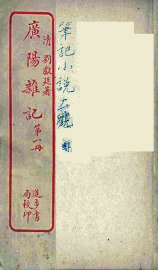 筆記小說大觀
清 劉獻廷著
廣陽雜記 第一冊
進步書局校印